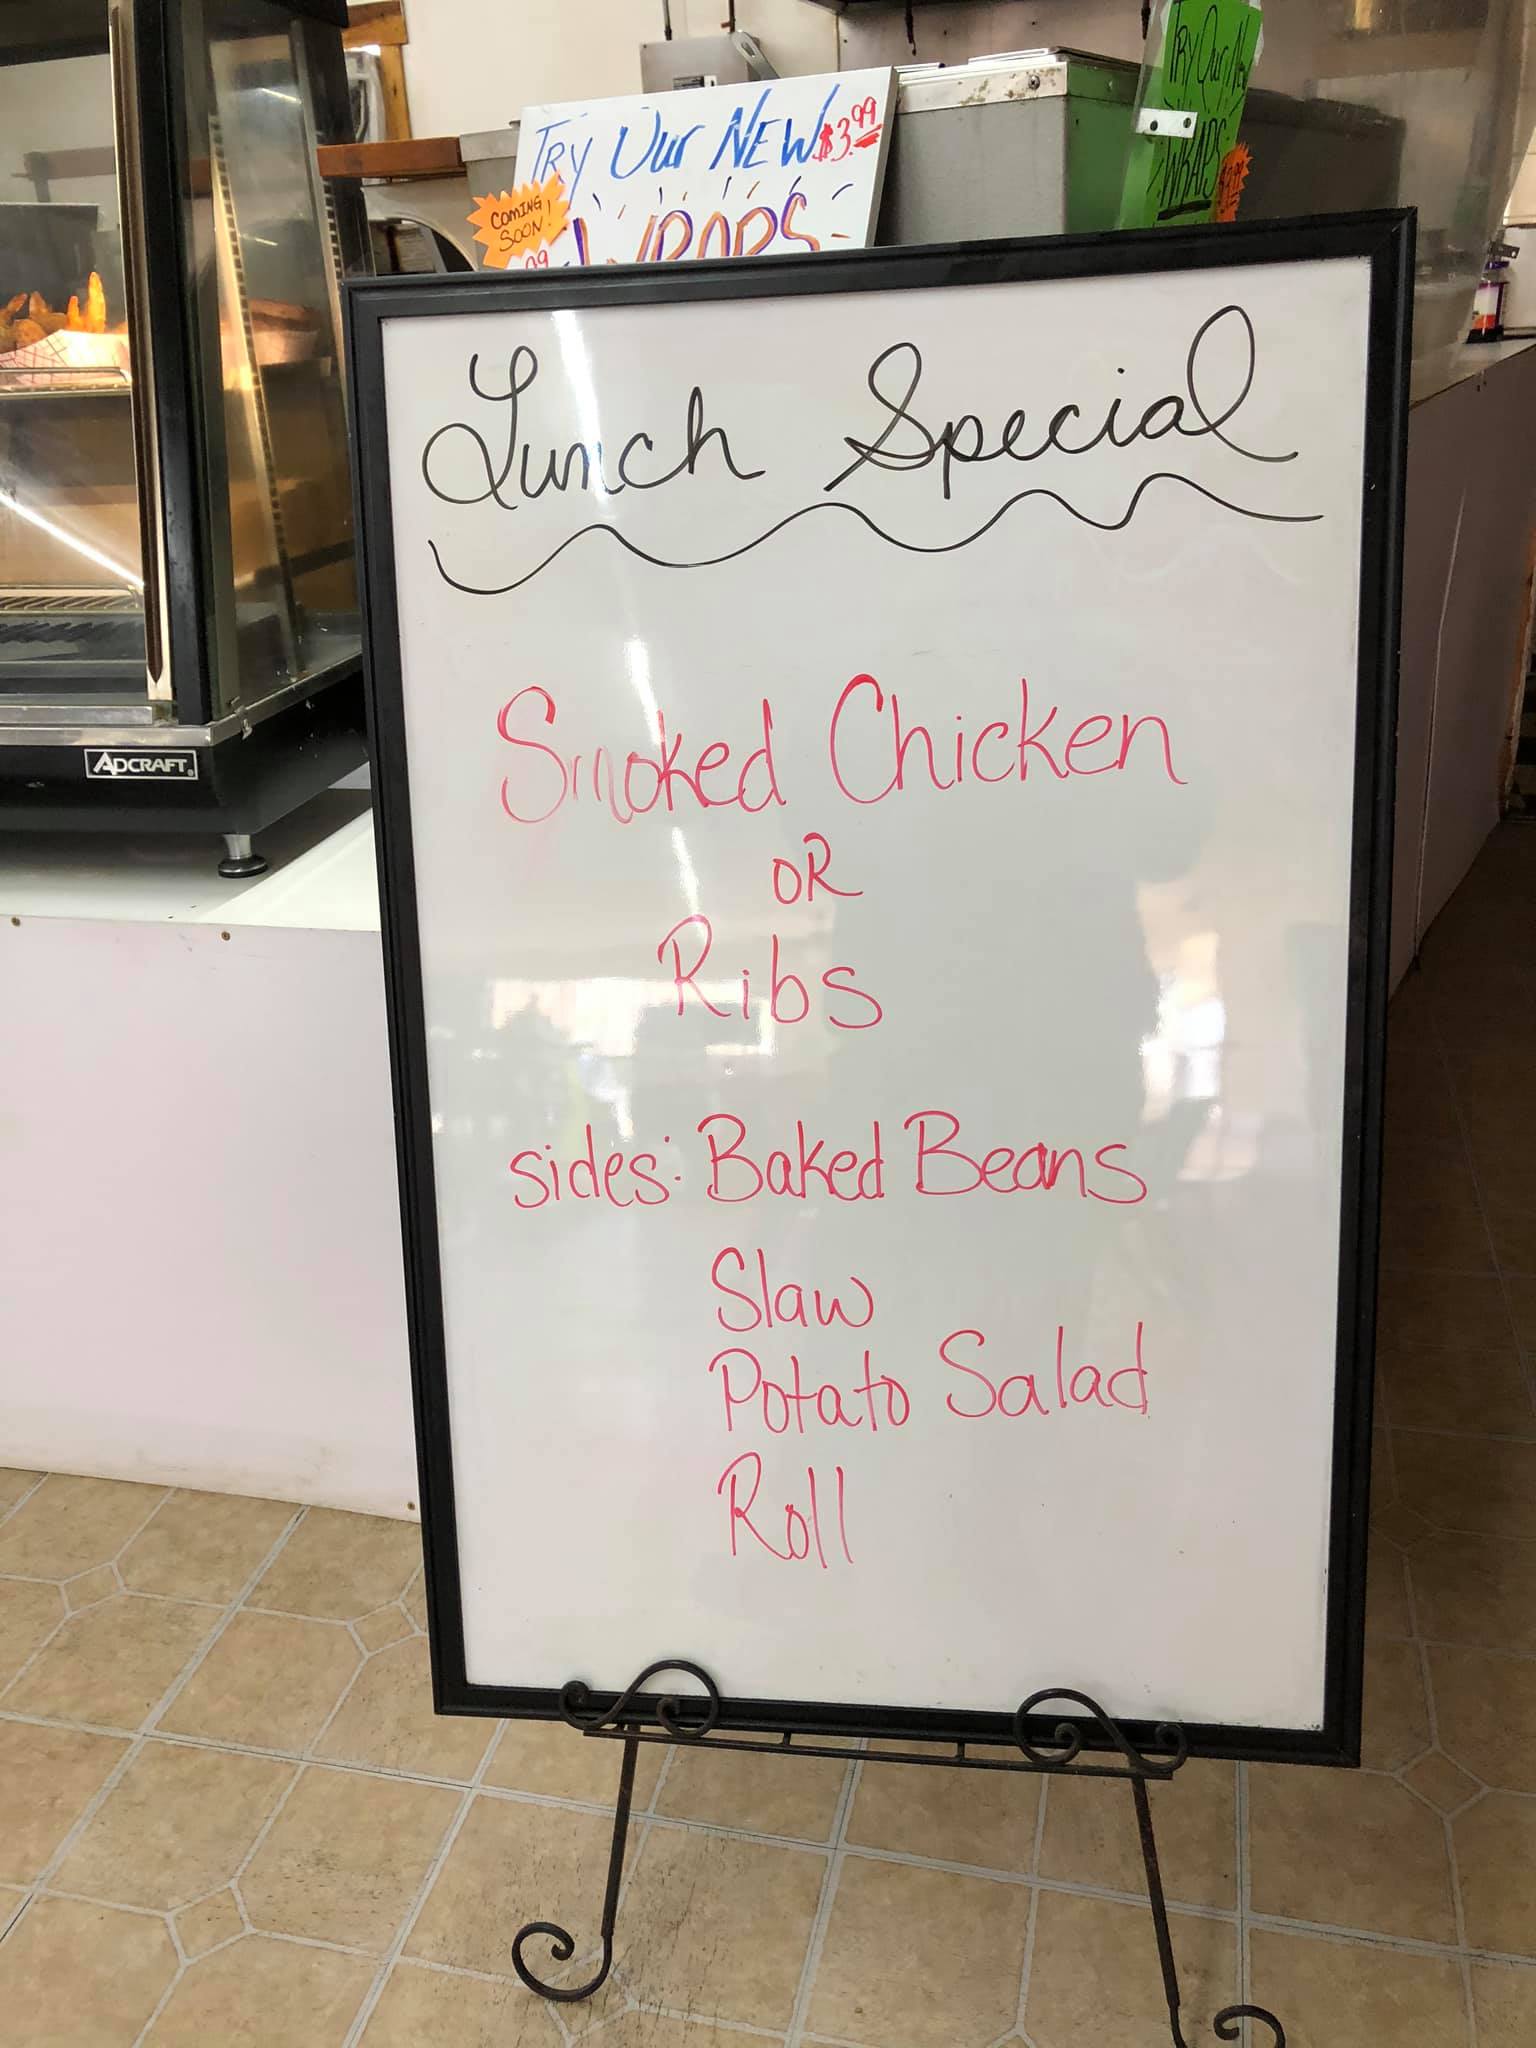 TRY Our NEW $3.99
WRAPS
COMING
SOON!
TRY Our New
WRAPS
ADCRAFT®
Lunch Special
Smoked Chicken
OR
Ribs
sides: Baked Beans
Slaw
Potato Salad
Roll